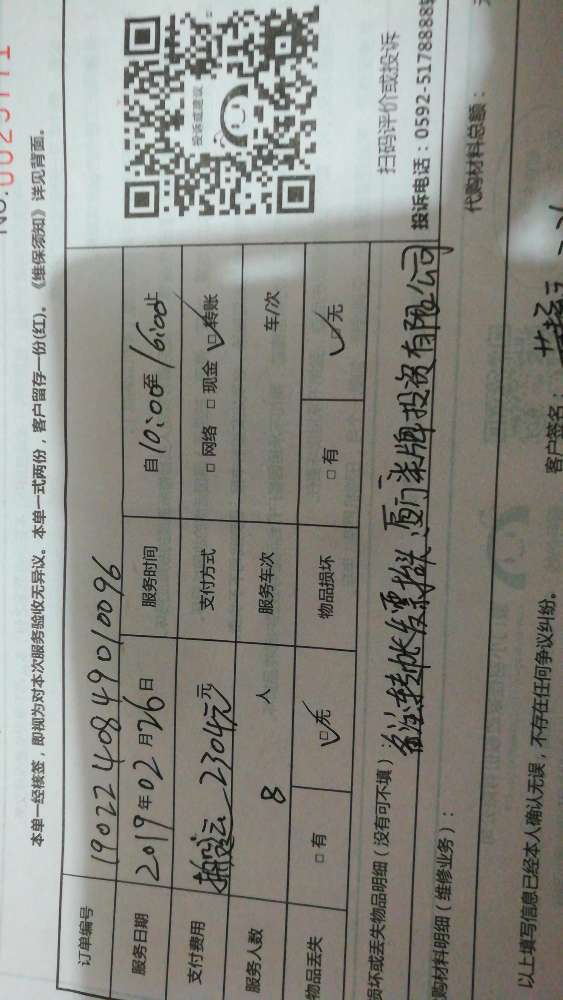 本单一经核签，即视为对本次服务验收无异议。本单一式两份，客户留存一份(红)。《维保须知》详见背面。
订单编号 1902240849010096
服务日期 2019年02月26日 服务时间 自10:00至16:00止
支付费用 搬运 2304元元 支付方式 □网络 □现金 ☑转账
服务人数 8 人 服务车次 车/次
物品丢失 □有 ☑无 物品损坏 □有 ☑无
投诉或建议
扫码评价或投诉
投诉电话：0592-5178888
损坏或丢失物品明细（没有可不填）：
备注：转帐发票抬头：厦门柒牌投资有限公司
购材料明细（维修业务）：
代购材料总额：
以上填写信息已经本人确认无误，不存在任何争议纠纷。
客户签名：